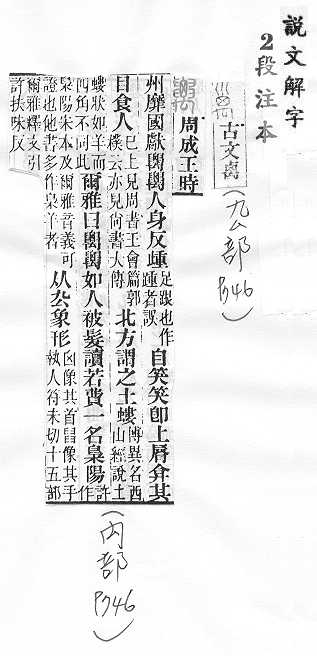 說文解字
2段注本
古文禼
(厹部
P746)
周成王時
州靡國獻𥝋𥝋人身反踵足跟也作踵者誤自笑笑卽上脣弇其
目食人已上見周書王會篇郭樸云亦見尚書大傳北方謂之土螻博異名西山經說土
螻狀如羊而四角不同此爾雅曰𥝋𥝋如人被髮讀若費一名梟陽許作
梟陽朱本及爾雅音義可證也他書多作梟羊者从厹象形凶像其首𦥑像其手執人符未切十五部
爾雅釋文引許扶味反
(禸部
P746)